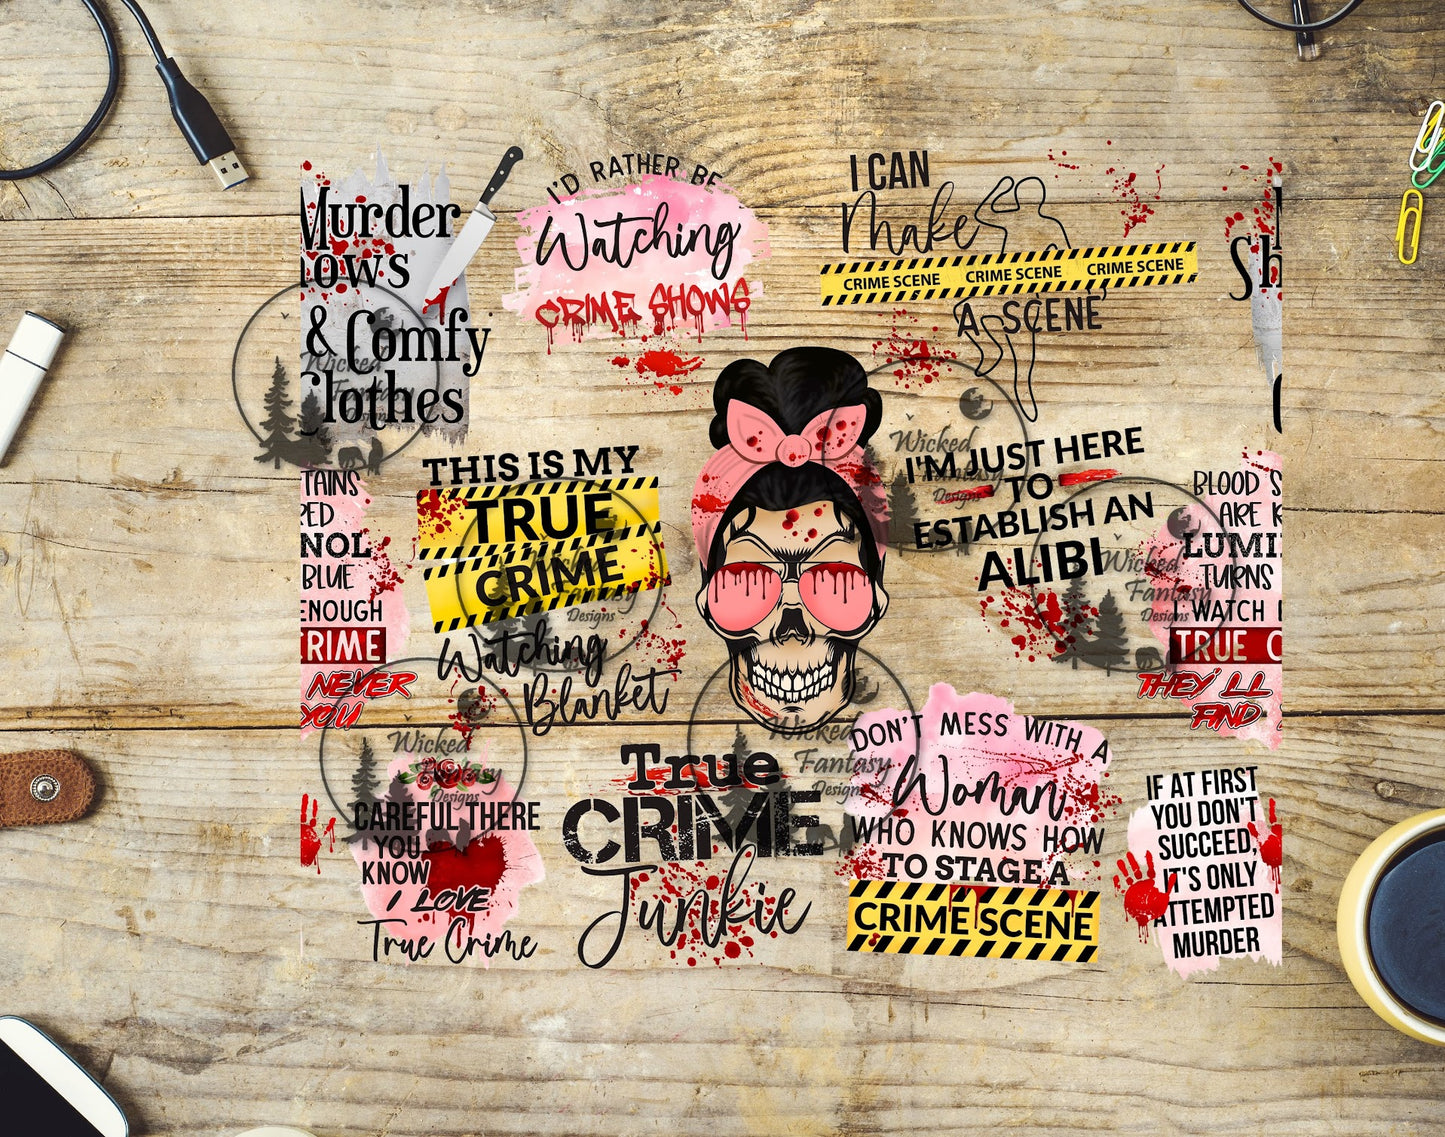 Murder
hows
& Comfy
Clothes
I'D RATHER BE
Watching
CRIME SHOWS
I CAN
Make
CRIME SCENE CRIME SCENE CRIME SCENE
A SCENE
Sh
TAINS
RED
NOL
BLUE
ENOUGH
RIME
NEVER
YOU
THIS IS MY
TRUE
CRIME
Watching
Blanket
I'M JUST HERE
TO
ESTABLISH AN
ALIBI
BLOOD S
ARE R
LUMI
TURNS
I WATCH
TRUE C
THEY'LL
FIND
CAREFUL THERE
YOU
KNOW
I LOVE
True Crime
True
CRIME
Junkie
DON'T MESS WITH A
Woman
WHO KNOWS HOW
TO STAGE A
CRIME SCENE
IF AT FIRST
YOU DON'T
SUCCEED,
IT'S ONLY
ATTEMPTED
MURDER
Wicked
Fantasy
Designs
Wicked
Fantasy
Designs
Wicked
Fantasy
Designs
Wicked
Fantasy
Designs
Wicked
Fantasy
Designs
Wicked
Fantasy
Designs